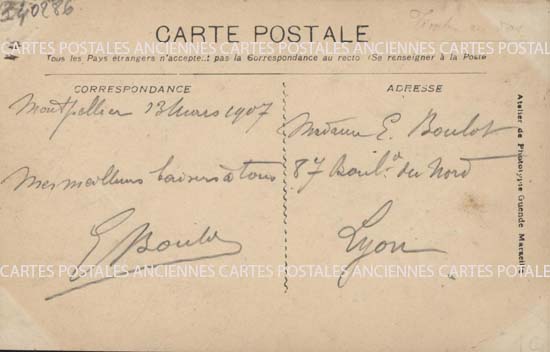 340286
CARTE POSTALE
CARTES POSTALES ANCIENNES CARTES POSTALES ANCIENNES CARTES POSTALES
Tous les Pays étrangers n'acceptent pas la Correspondance au recto (Se renseigner à la Poste
CORRESPONDANCE
Montpellier 13 Mars 1907
Mes meilleurs baisers à tous
E Boulot
ADRESSE
Madame E. Boulot
87 Boul.d du Nord
Lyon
CARTES POSTALES ANCIENNES CARTES POSTALES ANCIENNES CARTES POSTALES
Atelier de Phototypie Guende Marseille